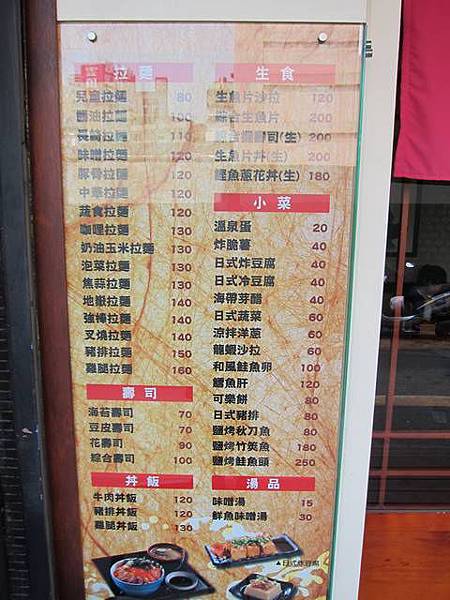 拉麵
兒童拉麵 80
醬油拉麵 100
長崎拉麵 110
味噌拉麵 120
豚骨拉麵 120
中華拉麵 120
蔬食拉麵 120
咖哩拉麵 130
奶油玉米拉麵 130
泡菜拉麵 130
焦蒜拉麵 130
地獄拉麵 140
強棒拉麵 140
叉燒拉麵 140
豬排拉麵 150
雞腿拉麵 160
壽司
海苔壽司 70
豆皮壽司 70
花壽司 90
綜合壽司 100
丼飯
牛肉丼飯 120
豬排丼飯 120
雞腿丼飯 130
生食
生魚片沙拉 120
綜合生魚片 200
綜合握壽司(生) 200
生魚片丼(生) 200
鰹魚蔥花丼(生) 180
小菜
溫泉蛋 20
炸脆薯 40
日式炸豆腐 40
日式冷豆腐 40
海帶芽醋 40
日式蔬菜 60
涼拌洋蔥 60
龍蝦沙拉 60
和風鮭魚卵 100
鱈魚肝 120
可樂餅 80
日式豬排 80
鹽烤秋刀魚 80
鹽烤竹筴魚 180
鹽烤鮭魚頭 250
湯品
味噌湯 15
鮮魚味噌湯 30
▲日式炸豆腐